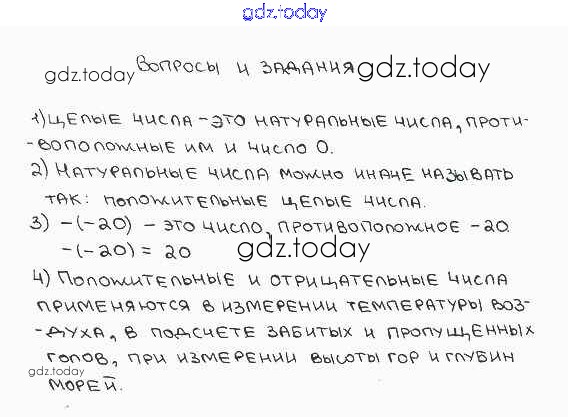 gdz.today
gdz.today Вопросы и задания gdz.today
1) Целые числа – это натуральные числа, проти-
-воположные им и число 0.
2) Натуральные числа можно иначе называть
так: положительные целые числа.
3) –(–20) – это число, противоположное –20.
–(–20) = 20 gdz.today
4) Положительные и отрицательные числа
применяются в измерении температуры воз-
-духа, в подсчете забитых и пропущенных
голов, при измерении высоты гор и глубин
gdz.today
морей.